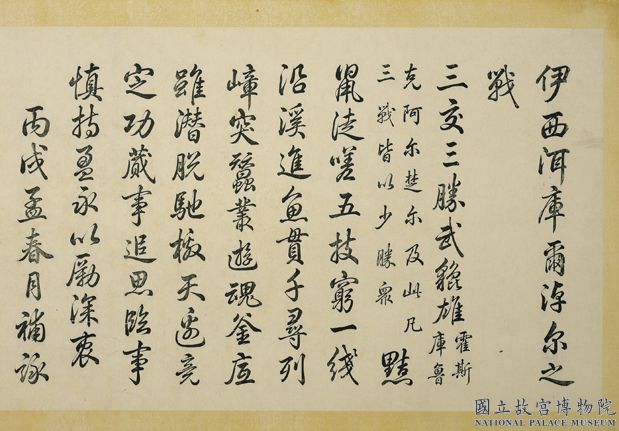 伊西洱庫爾淖尔之
戰
三交三勝武貔雄霍斯庫魯
克阿尔楚尔及此凡
三戰皆以少勝衆黠
鼠徒嗟五技窮一綫
沿溪進魚貫千尋列
嶂突蠶叢遊魂釜底
雖潜脱馳檄天邊竟
定功蕆事追思臨事
慎持盈永以勵深衷
丙戌孟春月補詠
國立故宮博物院
NATIONAL PALACE MUSEUM